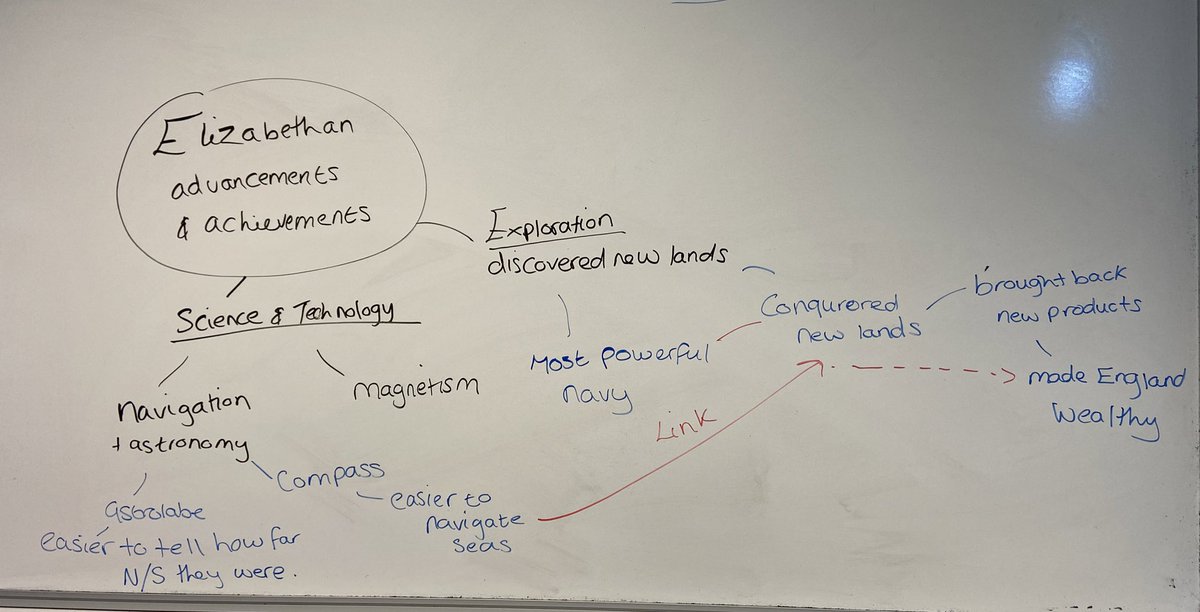 Elizabethan
advancements
& achievements
Exploration
discovered new lands
Science & Technology
Navigation
+ astronomy
magnetism
Most powerful
navy
Conqurered
new lands
brought back
new products
made England
wealthy
Link
Compass
easier to
navigate
seas
astrolabe
easier to tell how far
N/S they were.